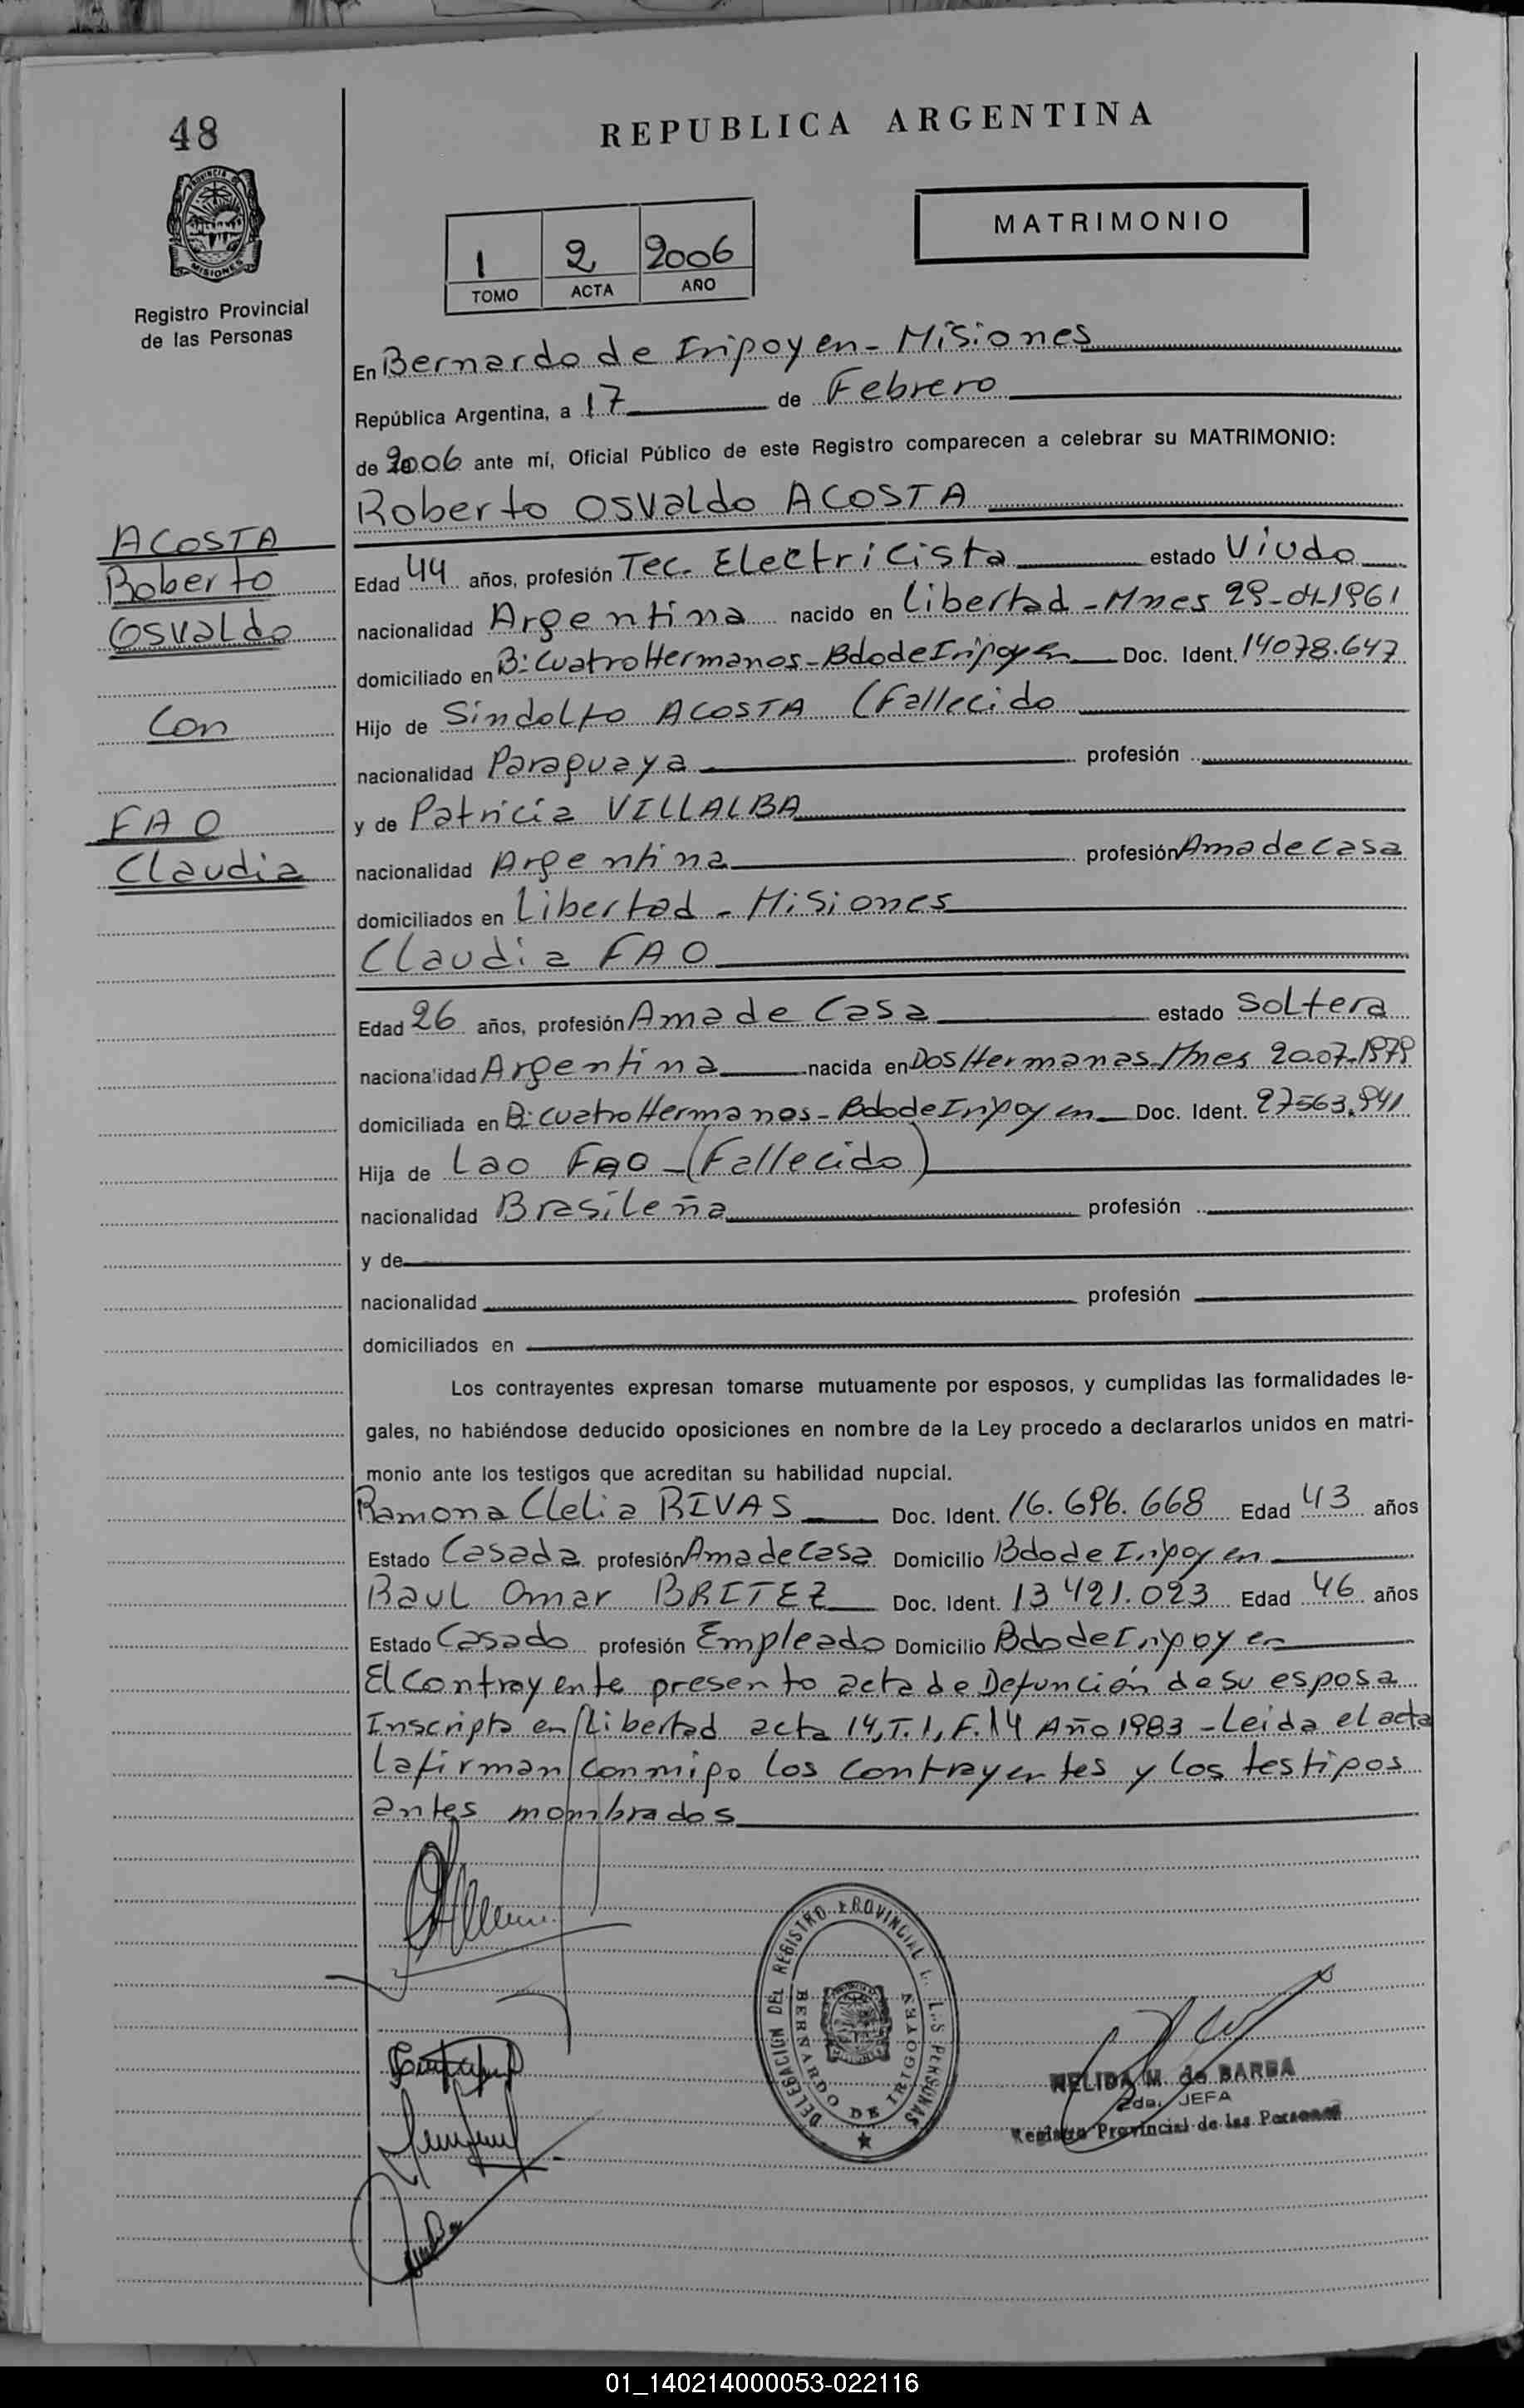 48
PROVINCIA DE
MISIONES
Registro Provincial
de las Personas
REPUBLICA ARGENTINA
MATRIMONIO
1 2 2006
TOMO ACTA AÑO
En Bernardo de Irigoyen - Misiones
República Argentina, a 17 de Febrero
de 2006 ante mí, Oficial Público de este Registro comparecen a celebrar su MATRIMONIO:
Roberto Osvaldo ACOSTA
ACOSTA
Roberto
Osvaldo
Con
FAO
Claudia
Edad 44 años, profesión Tec. Electricista estado Viudo
nacionalidad Argentina nacido en Libertad - Mnes 29-01-1961
domiciliado en B: Cuatro Hermanos - Bdo de Irigoyen Doc. Ident. 14078.647
Hijo de Sindolfo ACOSTA (Fallecido
nacionalidad Paraguaya profesión
y de Patricia VILLALBA
nacionalidad Argentina profesión Ama de Casa
domiciliados en Libertad - Misiones
Claudia FAO
Edad 26 años, profesión Ama de Casa estado Soltera
nacionalidad Argentina nacida en Dos Hermanas - Mnes 20-07-1979
domiciliada en B: Cuatro Hermanos - Bdo de Irigoyen Doc. Ident. 27563.941
Hija de Lao FAO - (Fallecido)
nacionalidad Brasileña profesión
y de
nacionalidad profesión
domiciliados en
Los contrayentes expresan tomarse mutuamente por esposos, y cumplidas las formalidades le-
gales, no habiéndose deducido oposiciones en nombre de la Ley procedo a declararlos unidos en matri-
monio ante los testigos que acreditan su habilidad nupcial.
Ramona Clelia RIVAS Doc. Ident. 16.696.668 Edad 43 años
Estado Casada profesión Ama de Casa Domicilio Bdo de Irigoyen
Raul Omar BRITEZ Doc. Ident. 13 421.023 Edad 46 años
Estado Casado profesión Empleado Domicilio Bdo de Irigoyen
El Contrayente presento acta de Defunción de su esposa
Inscripta en Libertad acta 14, T.1, F.14 Año 1983 - Leida el acta
la firman conmigo los contrayentes y los testigos
antes nombrados
DELEGACION DEL REGISTRO PROVINCIAL PERSONAS
BERNARDO DE IRIGOYEN
NELIDA M. de BARBA
2da. JEFA
Registro Provincial de las Personas
01_140214000053-022116